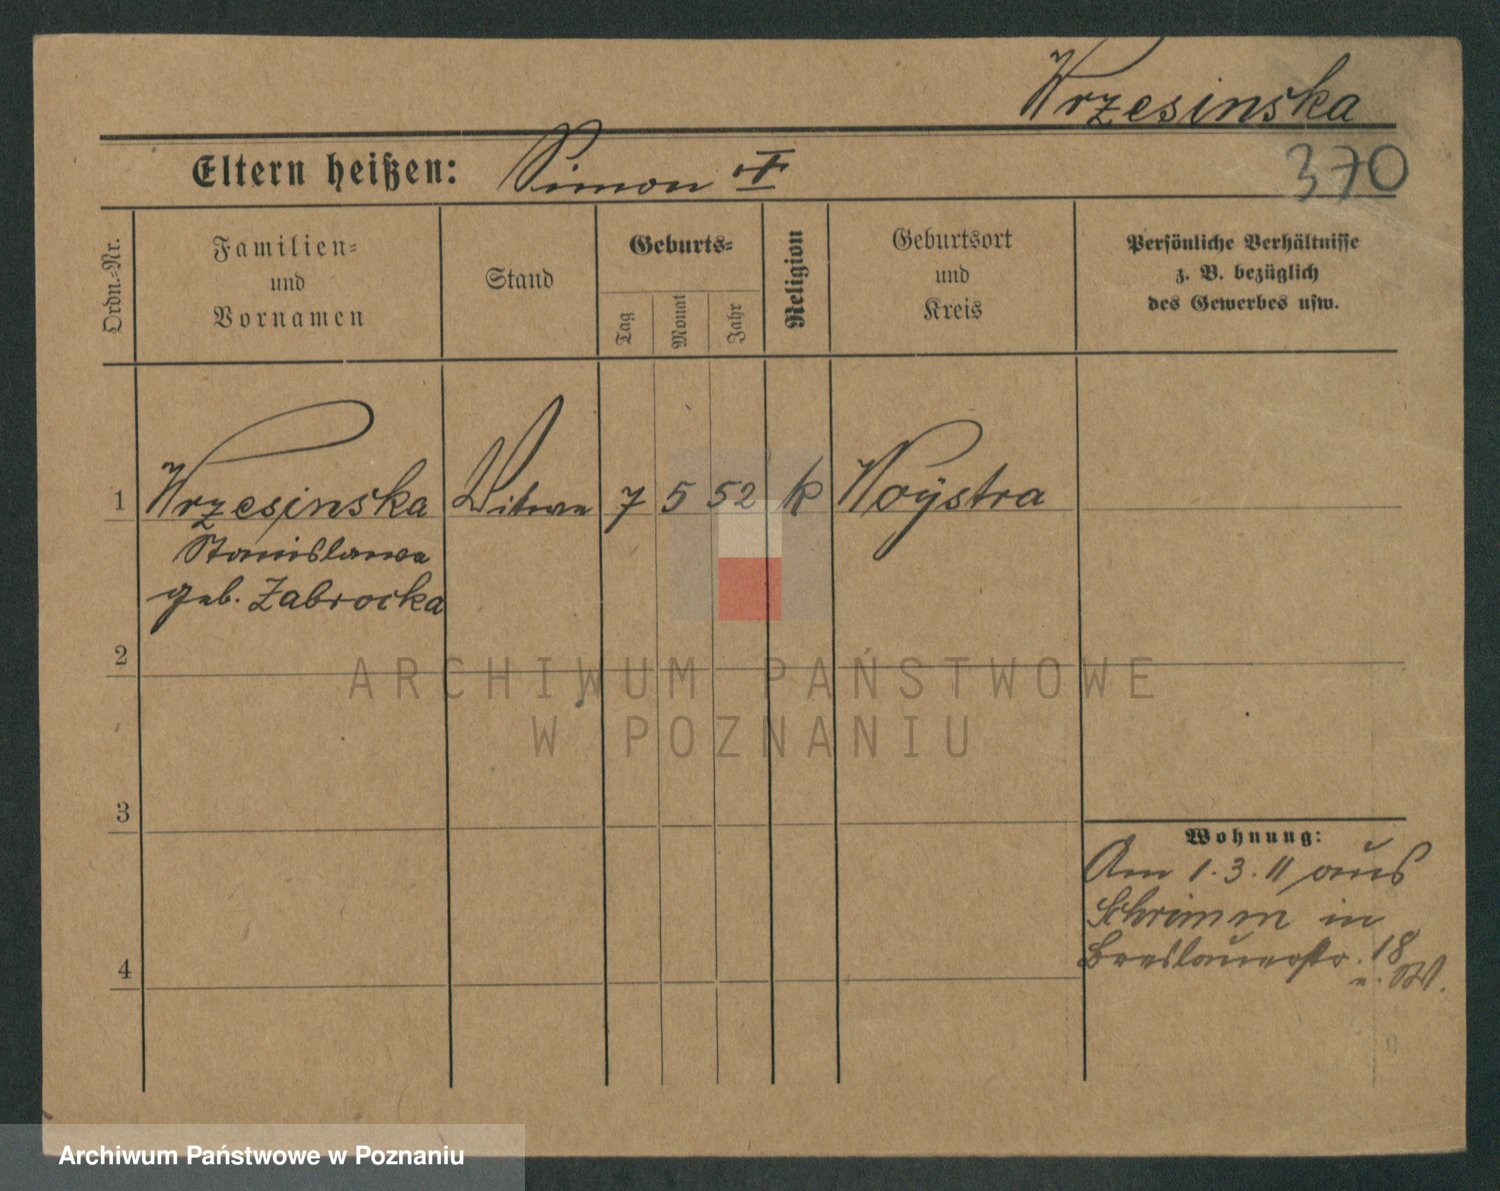 Wrzesinska
Eltern heißen: Simon
370
Ordn.-Nr.
Familien-
und
Vornamen
Stand
Geburts-
Tag
Monat
Jahr
Religion
Geburtsort
und
Kreis
Persönliche Verhältnisse
z. B. bezüglich
des Gewerbes usw.
1 Wrzesinska Witwe 7 5 52 k Woystra
Stanislawa
geb. Zabrocka
2
ARCHIWUM PAŃSTWOWE
W POZNANIU
3
Wohnung:
Am 1.3.11 aus
Schrimm in
Breslauerstr. 18
4
Archiwum Państwowe w Poznaniu